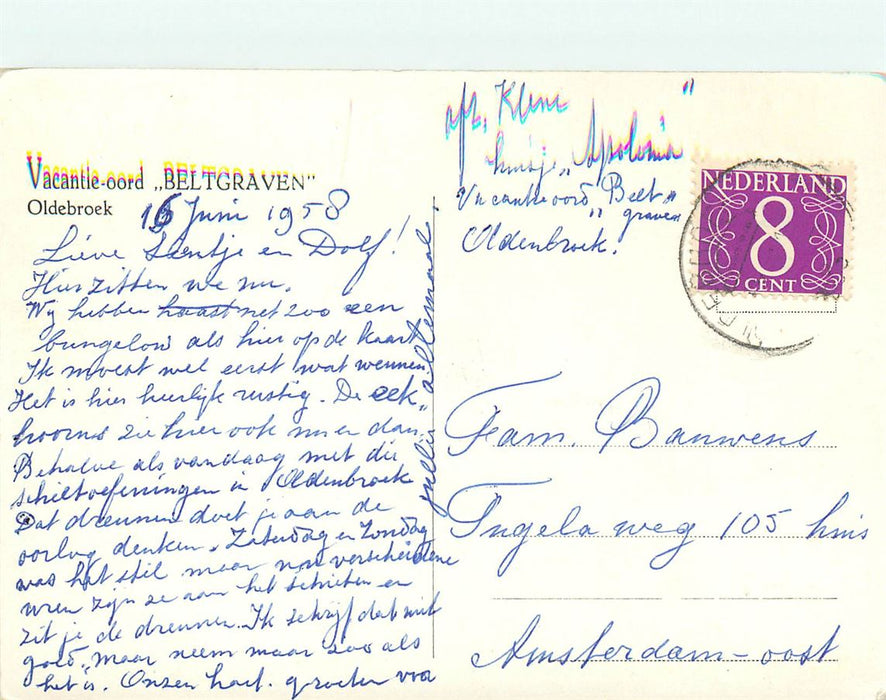 Vacantie-oord „BELTGRAVEN"
Oldebroek
16 Juni 1958
Lieve Sientje en Dolf!
Hier zitten we nu.
Wij hebben haast net zoo een
bungelow als hier op de kaart
Ik moest wel eerst wat wennen
Het is hier heerlijk rustig. De eek„
hoorns zie hier ook nu en dan.
Behalve als vandaag met die
schietoefeningen in Oldenbroek
Dat dreunen doet je aan de
oorlog denken. Zaterdag en Zondag
was het stil maar nu verscheidene
uren zijn ze aan het schieten en
zit je de dreunen. Ik schrijf dat niet
goed, maar neem maar zoo als
het is. Onzen hart. groeten voor
jullie allemaal.
afz. Klene
huisje „Apolonia"
Vacantieoord „Belt„
graven
Oldenbroek.
NEDERLAND
8
CENT
Fam. Bauwens
Ingelaweg 105 huis
Amsterdam-oost